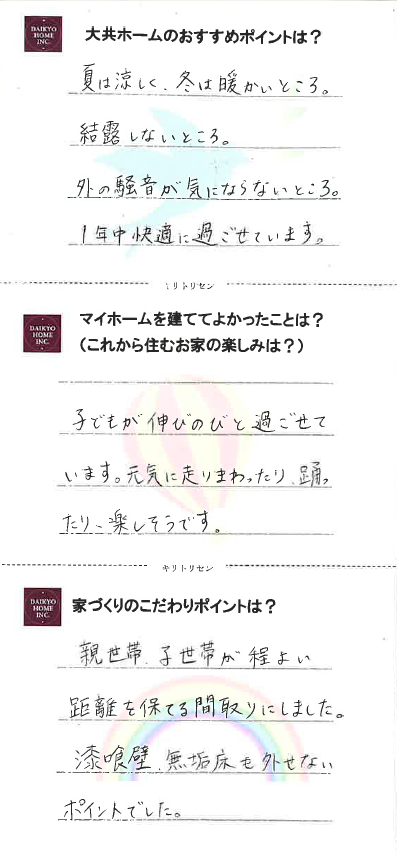 DAIKYO
HOME
INC.
大共ホームのおすすめポイントは？
夏は涼しく、冬は暖かいところ。
結露しないところ。
外の騒音が気にならないところ。
1年中快適に過ごせています。
キリトリセン
DAIKYO
HOME
INC.
マイホームを建ててよかったことは？
（これから住むお家の楽しみは？）
子どもが伸びのびと過ごせて
います。元気に走りまわったり、踊っ
たり、楽しそうです。
キリトリセン
DAIKYO
HOME
INC.
家づくりのこだわりポイントは？
親世帯、子世帯が程よい
距離を保てる間取りにしました。
漆喰壁、無垢床も外せない
ポイントでした。